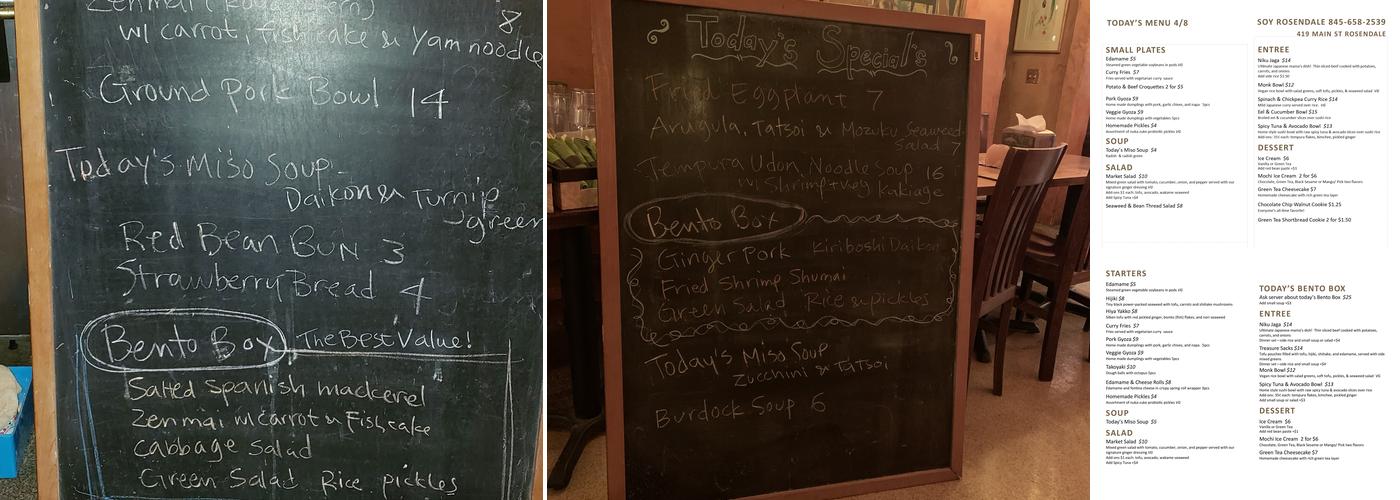 Zenmai
8
w/ carrot, fishcake & Yam noodle
Ground Pork Bowl 4
Today's Miso Soup
Daikon & Turnip
green
Red Bean Bun 3
Strawberry Bread 4
Bento Box The Best Value!
Salted Spanish mackerel
Zenmai w/ carrot & Fishcake
Cabbage Salad
Green Salad Rice pickles
Today's Special's
Fried Eggplant 7
Arugula, Tatsoi & Mozuku Seaweed
Salad 7
Tempura Udon Noodle Soup 16
Shrimp + veg Kakiage
Bento Box
Ginger Pork Kiriboshi Daikon
Fried Shrimp Shumai
Green Salad Rice & pickles
Today's Miso Soup
Zucchini & Tatsoi
Burdock Soup 6
TODAY'S MENU 4/8
SOY ROSENDALE 845-658-2539
419 MAIN ST ROSENDALE
SMALL PLATES
Edamame $5
Steamed green vegetable soybeans in pods VG
Curry Fries $7
Fries served with vegetarian curry sauce
Potato & Beef Croquettes 2 for $5
Pork Gyoza $9
Home made dumplings with pork, garlic chives, and napa 5pcs
Veggie Gyoza $9
Home made dumplings with vegetables 5pcs
Homemade Pickles $4
Assortment of nuka-zuke probiotic pickles VG
SOUP
Today's Miso Soup $4
Radish & radish green
SALAD
Market Salad $10
Mixed green salad with tomato, cucumber, onion, and pepper served with our
signature ginger dressing VG
Add-ons $1 each: tofu, avocado, wakame seaweed
Add Spicy Tuna +$4
Seaweed & Bean Thread Salad $8
ENTREE
Niku Jaga $14
Ultimate Japanese mama's dish! Thin sliced beef cooked with potatoes,
carrots, and onions
Add side rice $1.50
Monk Bowl $12
Vegan rice bowl with salad greens, soft tofu, pickles, & seaweed salad VG
Spinach & Chickpea Curry Rice $14
Mild Japanese curry served over rice VG
Eel & Cucumber Bowl $15
Broiled eel & cucumber slices over sushi rice
Spicy Tuna & Avocado Bowl $13
Home style sushi bowl with raw spicy tuna & avocado slices over sushi rice
Add-ons: 35¢ each: tempura flakes, kimchee, pickled ginger
DESSERT
Ice Cream $6
Vanilla or Green Tea
Add red bean paste +$1
Mochi Ice Cream 2 for $6
Chocolate, Green Tea, Black Sesame or Mango/ Pick two flavors
Green Tea Cheesecake $7
Homemade cheesecake with rich green tea layer
Chocolate Chip Walnut Cookie $1.25
Everyone's all-time favorite!
Green Tea Shortbread Cookie 2 for $1.50
STARTERS
Edamame $5
Steamed green vegetable soybeans in pods VG
Hijiki $8
Tiny black power-packed seaweed with tofu, carrots and shiitake mushrooms
Hiya Yakko $8
Silken tofu with red pickled ginger, bonito (fish) flakes, and nori seaweed
Curry Fries $7
Fries served with vegetarian curry sauce
Pork Gyoza $9
Home made dumplings with pork, garlic chives, and napa 5pcs
Veggie Gyoza $9
Home made dumplings with vegetables 5pcs
Takoyaki $10
Dough balls with octopus 5pcs
Edamame & Cheese Rolls $8
Edamame and fontina cheese in crispy spring roll wrapper 3pcs
Homemade Pickles $4
Assortment of nuka-zuke probiotic pickles VG
SOUP
Today's Miso Soup $5
SALAD
Market Salad $10
Mixed green salad with tomato, cucumber, onion, and pepper served with our
signature ginger dressing VG
Add-ons $1 each: tofu, avocado, wakame seaweed
Add Spicy Tuna +$4
TODAY'S BENTO BOX
Ask server about today's Bento Box $25
Add small soup +$3
ENTREE
Niku Jaga $14
Ultimate Japanese mama's dish! Thin sliced beef cooked with potatoes,
carrots, and onions
Dinner set – side rice and small soup or salad +$4
Treasure Sacks $14
Tofu pouches filled with tofu, hijiki, shiitake, and edamame, served with side
mixed greens
Dinner set – side rice and small soup +$4
Monk Bowl $12
Vegan rice bowl with salad greens, soft tofu, pickles, & seaweed salad VG
Spicy Tuna & Avocado Bowl $13
Home style sushi bowl with raw spicy tuna & avocado slices over sushi rice
Add-ons: 35¢ each: tempura flakes, kimchee, pickled ginger
Add small soup or salad +$3
DESSERT
Ice Cream $6
Vanilla or Green Tea
Add red bean paste +$1
Mochi Ice Cream 2 for $6
Chocolate, Green Tea, Black Sesame or Mango/ Pick two flavors
Green Tea Cheesecake $7
Homemade cheesecake with rich green tea layer